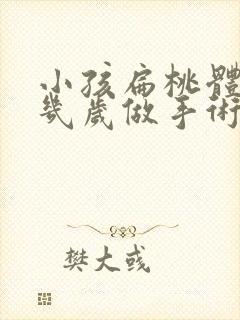 小孩扁桃體
幾歲做手術
樊大彧